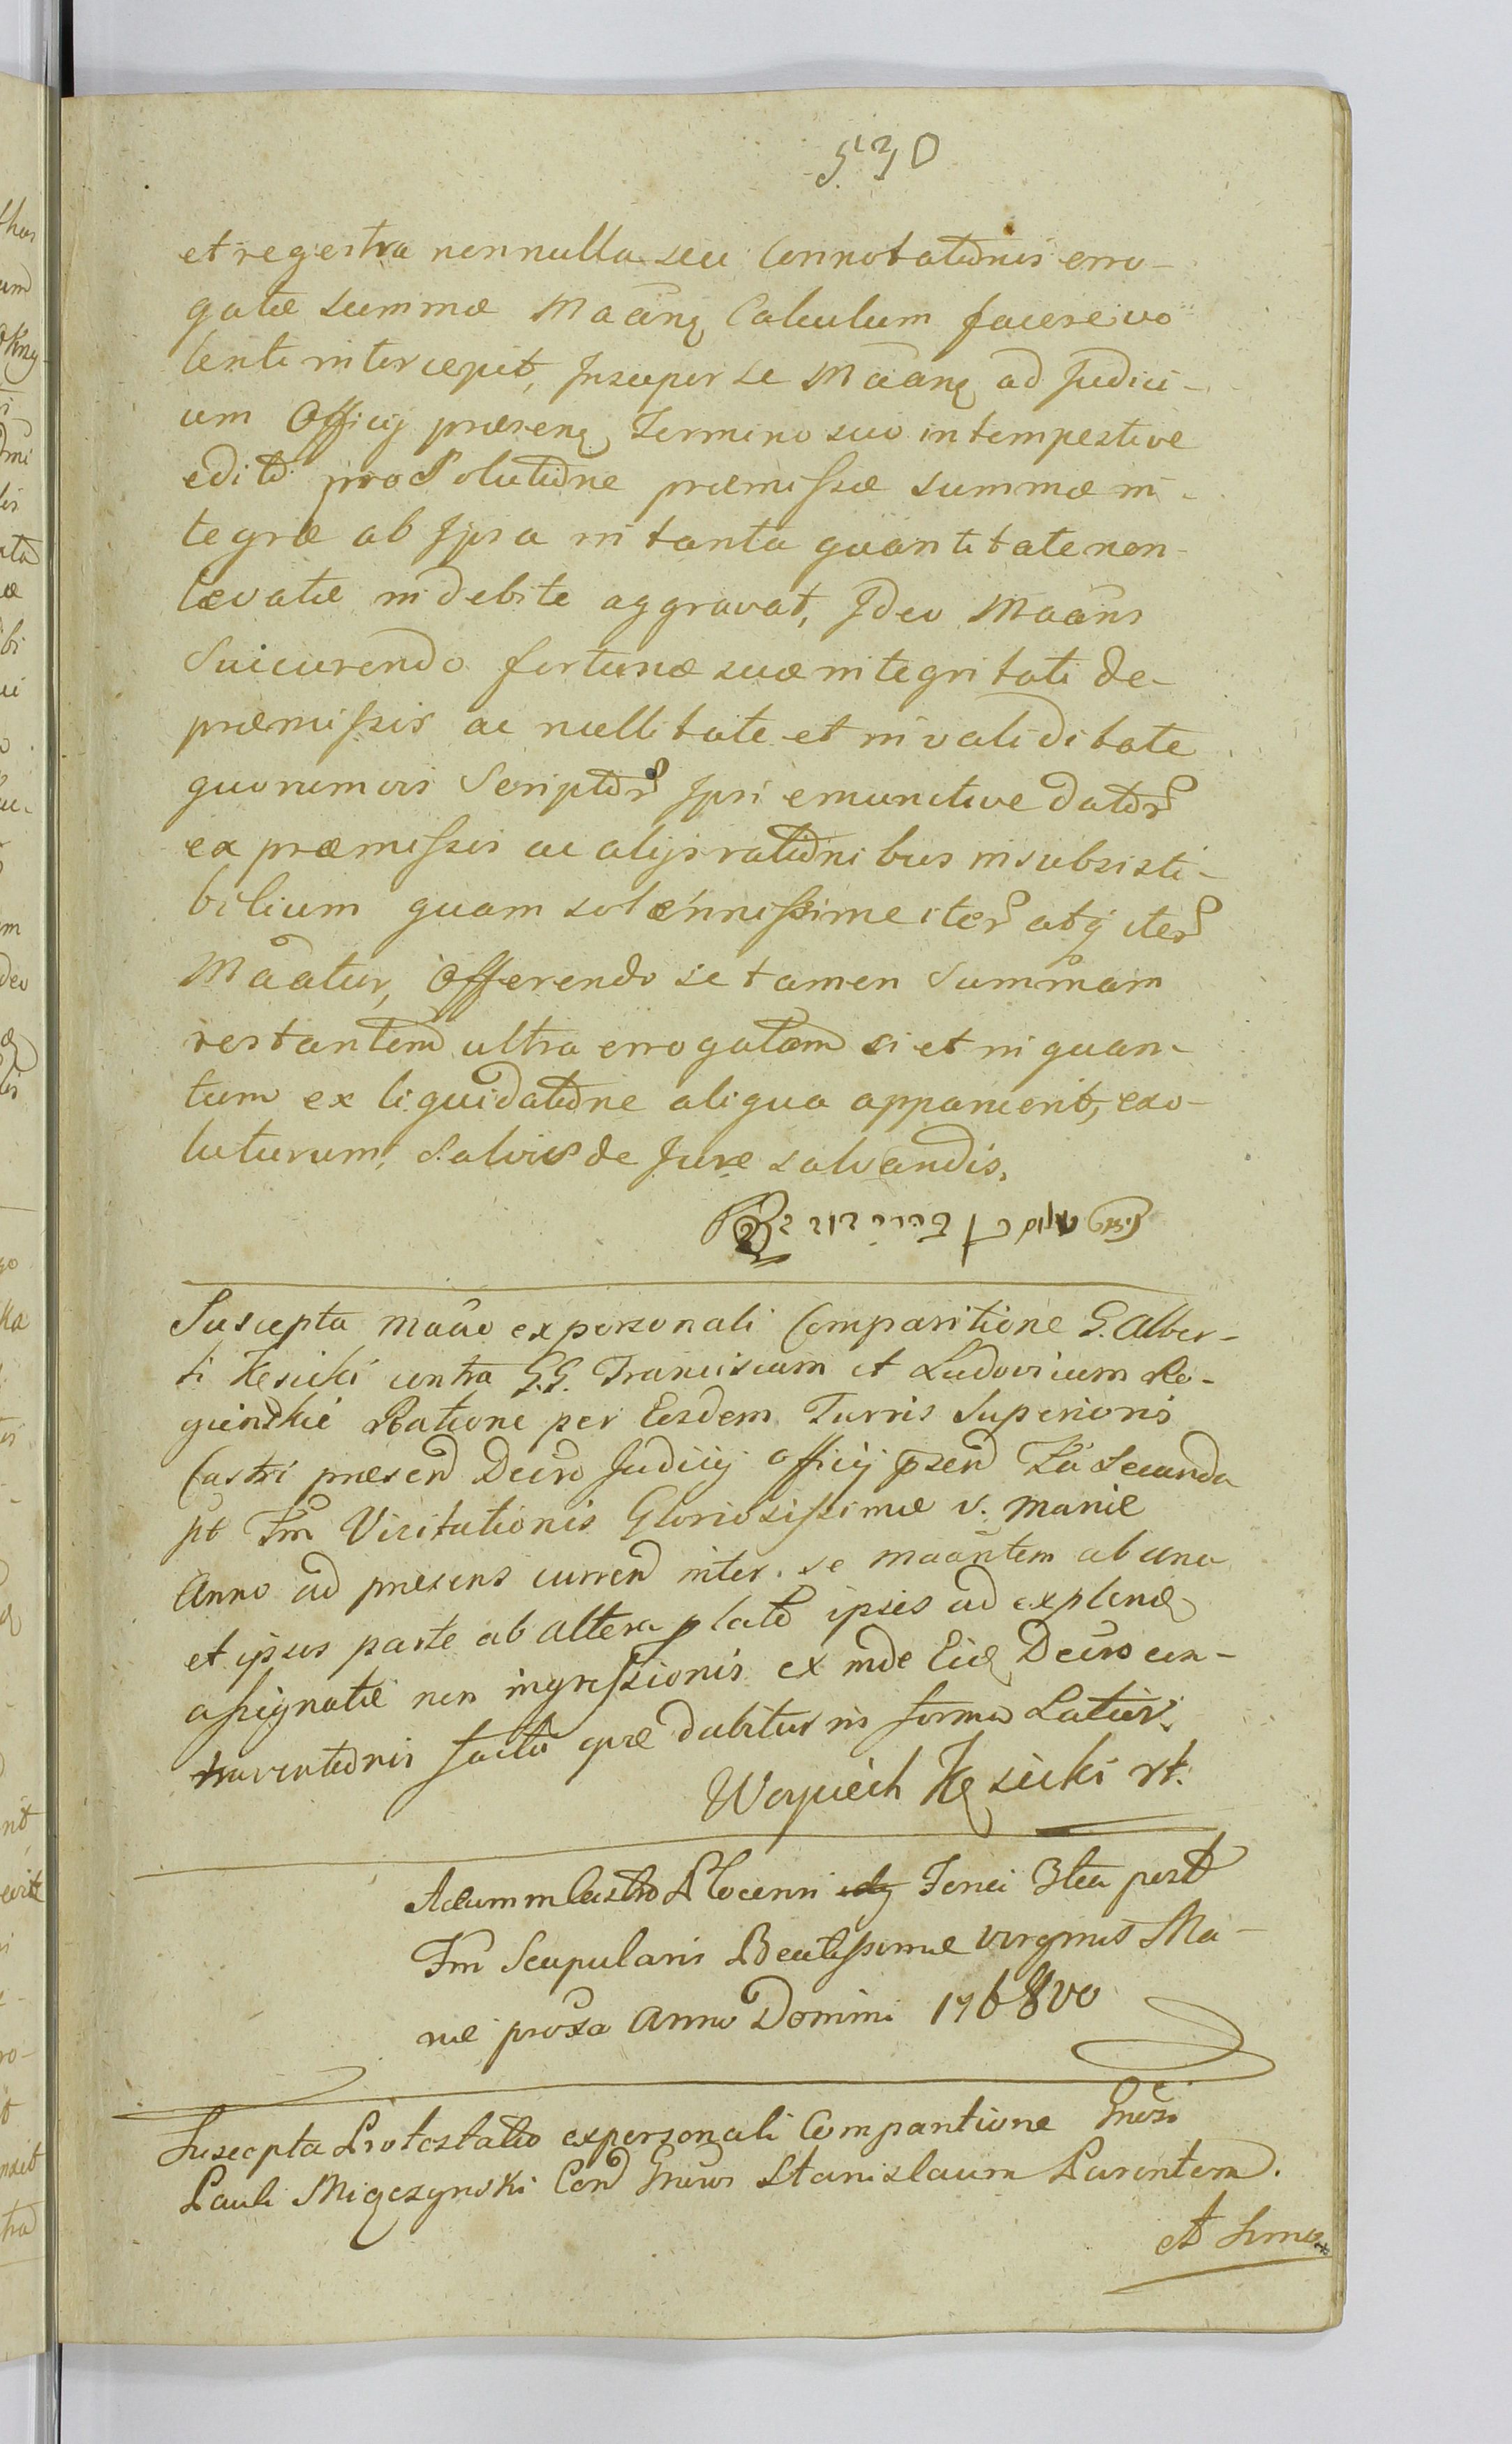 530
et regestra nonnulla seu Connotationis erro-
gatæ summæ Maanę Calculum facere vo
lenti intercepit, Insuper se Maanę ad Judici-
um Officij præsenę Termino suo intempestive
edito pro Solutione præmissæ summæ in-
tegræ ab Ipsa in tanta quantitate non-
levatæ indebite aggravat, Ideo Maans
Succurendo fortunæ suæ integritati de-
præmissis ac nullitate et invaliditate
quorumvis Scriptor Ipsi emunctive dator
ex præmissis ac alijs rationibus insubsisti-
bilium quam solænnissime iter atq iter
Maatur, Offerendo se tamen Summam
restantem ultra errogatam si et in quan-
tum ex liquidatione aliqua apparuerit, exo-
luturum, Salvis de Jure salvandis.
Suscepta maao ex personali Comparitione G. Alber-
ti Kęsicki contra G.G. Franciscum et Ludovicum Ro-
gienskie Ratione per Eosdem Turris Superioris
Castri præsen Decro Judicij officij pæsen Fa Secunda
pt Fm Visitationis Gloriosissimæ V. Mariæ
Anno ad præsens curren inter se maantem ab una
et ipsos parte ab altera plato ipsis ad explenę
assignatæ non ingressionis ex inde Eidę Decro con-
traventionis facta quæ dabitur in forma Latiori.
Woyciech Kęsicki rt.
Actum in Castro Plocenn Feria 3tia post
Fm Scapularis Beatissimæ Virginis Ma-
riæ proxa Anno Domini 1768vo
Suscepta Protestatio ex personali Comparitione Gnosi
Pauli Miączynski Con Gnosos Stanislaum Parentem.